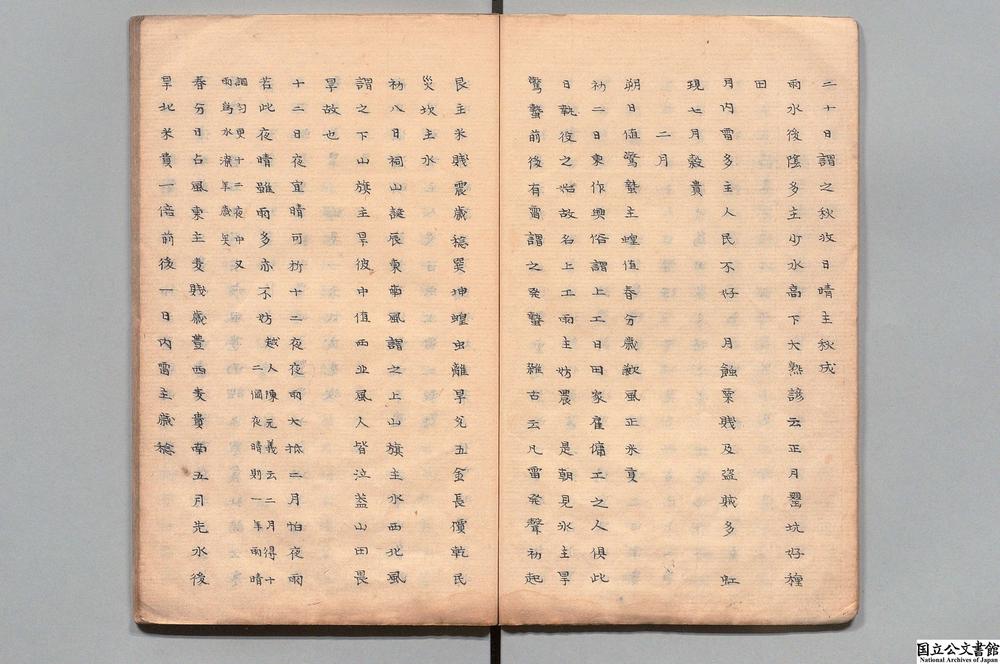 二十日謂之秋收日晴主秋成
雨水後陰多主少水高下大熟諺云正月罌坑好種
田
月内雷多主人民不好 月蝕粟賤及盗賊多 虹
現七月穀貴
二月
朔日值驚蟄主蝗值春分歳歉風雨主米貴
初二日東作興俗謂上工日田家雇傭工之人俱此
日執役之始故名上工雨主妨農 是朝見氷主旱
驚蟄前後有雷謂之発蟄 雜古云凡雷発聲初起
艮主米賤震歳稔巽坤蝗虫離旱兌五金長價乾民
災坎主水
初八日祠山誕辰東南風謂之上山旗主水西北風
謂之下山旗主旱彼中值西北風人皆泣蓋山田畏
旱故也
十二日夜宜晴可折十二夜夜雨大抵二月怕夜雨
若此夜晴雖雨多亦不妨 越人陳元義云二月得十
二個夜晴則一年雨晴
調匀更十二夜中又
雨為水潦年歳
春分日占風東主麦賤歳豊西麦貴南五月先水後
旱北米貴一倍前後一日内雷主歳稔
国立公文書館
National Archives of Japan